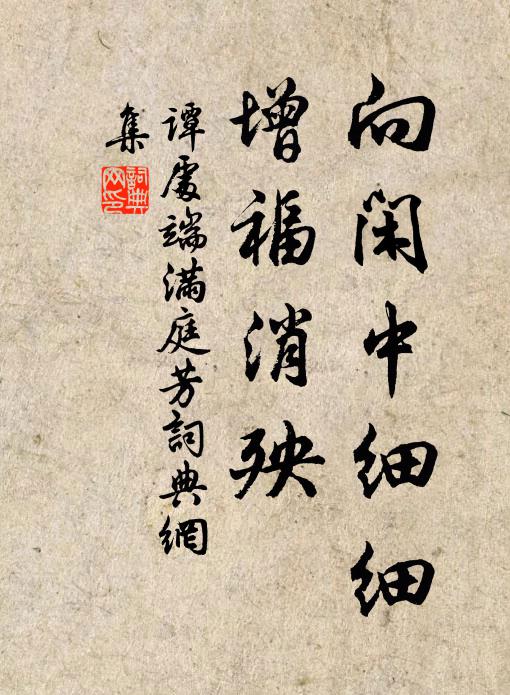 向闲中细细
增福消殃
谭處端满庭芳詞典網
集
詞典网印